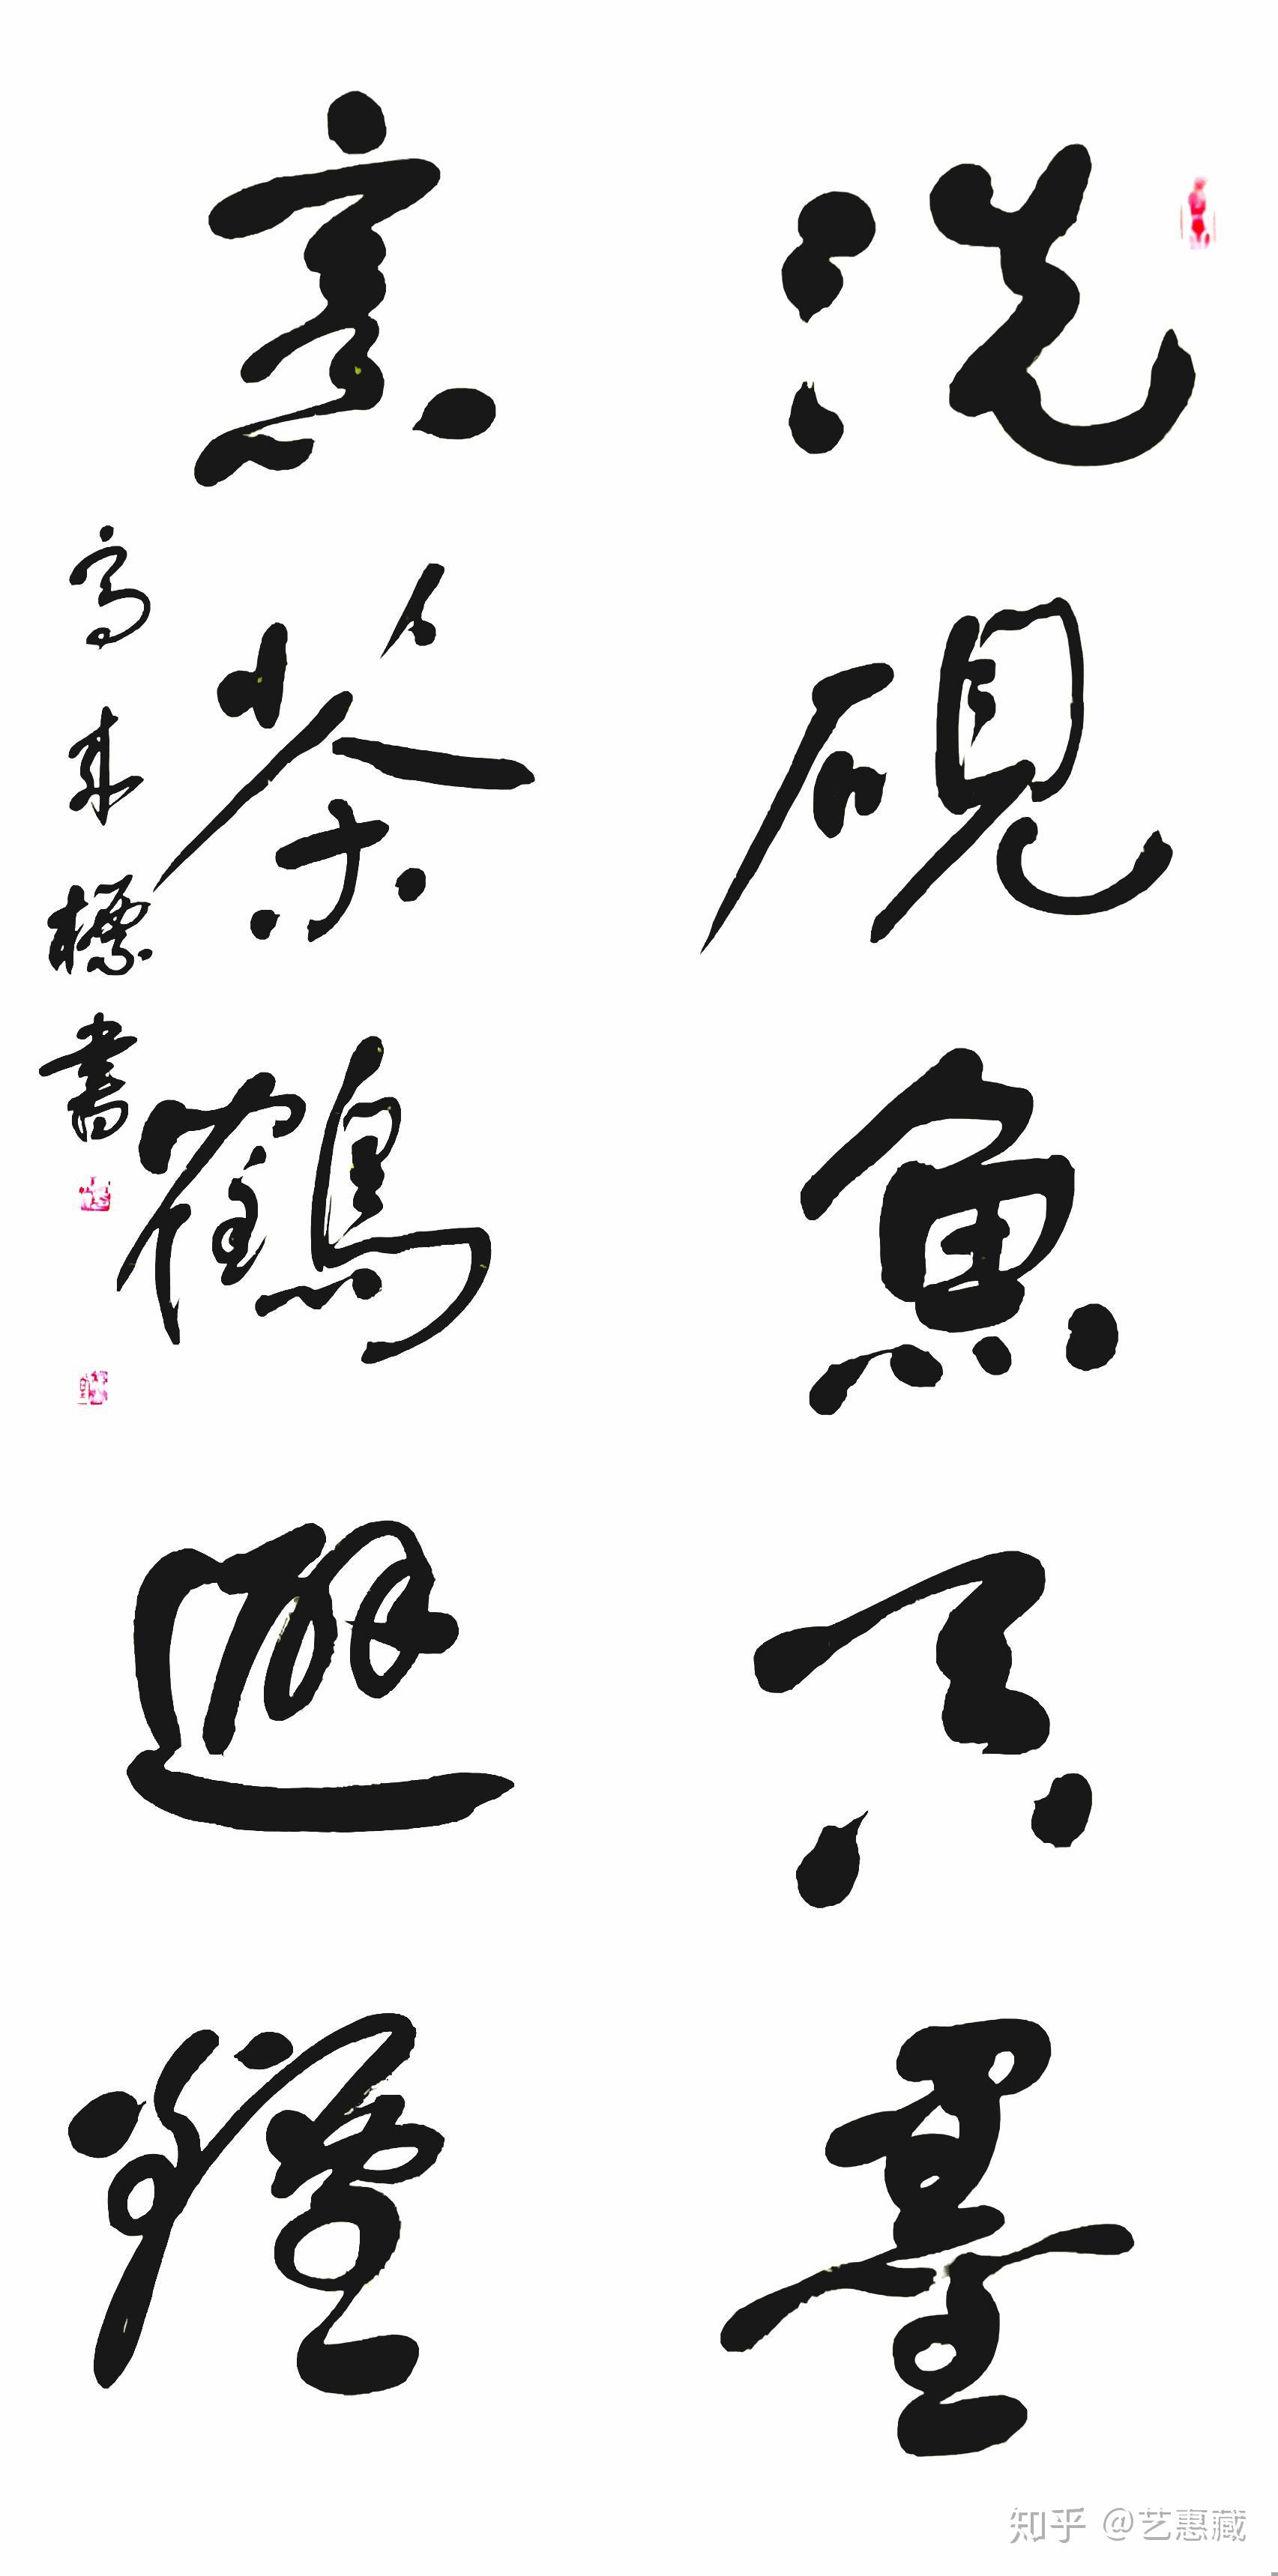 洗硯魚吞墨
烹茶鶴避煙
高來標書
知乎 @艺惠藏